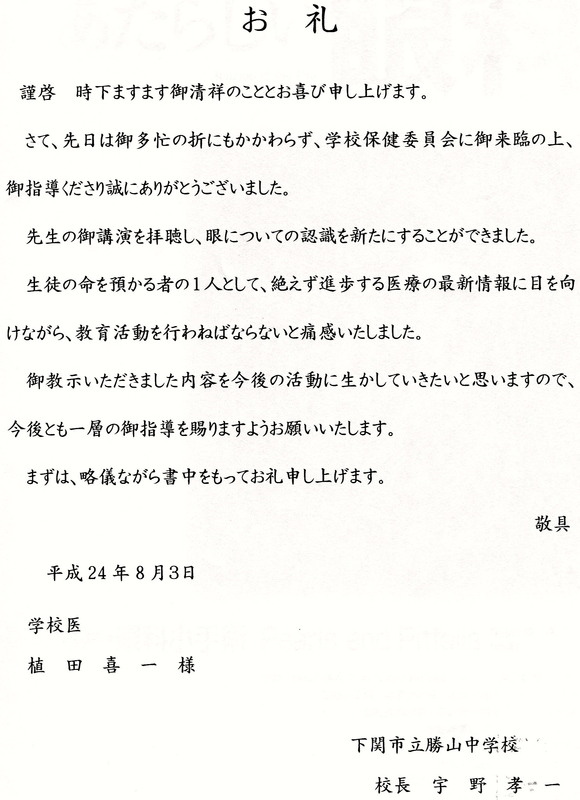 お 礼
謹啓　時下ますます御清祥のこととお喜び申し上げます。
さて、先日は御多忙の折にもかかわらず、学校保健委員会に御来臨の上、
御指導くださり誠にありがとうございました。
先生の御講演を拝聴し、眼についての認識を新たにすることができました。
生徒の命を預かる者の1人として、絶えず進歩する医療の最新情報に目を向
けながら、教育活動を行わねばならないと痛感いたしました。
御教示いただきました内容を今後の活動に生かしていきたいと思いますので、
今後とも一層の御指導を賜りますようお願いいたします。
まずは、略儀ながら書中をもってお礼申し上げます。
敬具
平成 24 年 8 月3日
学校医
植 田 喜 一 様
下関市立勝山中学校
校長 宇 野 孝 一